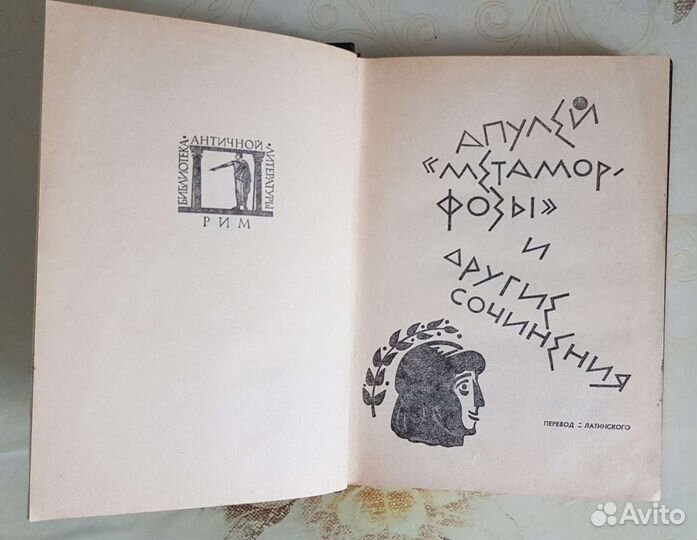 БИБЛИОТЕКА · АНТИЧНОЙ · ЛИТЕРАТУРЫ
РИМ
АПУЛЕЙ
«МЕТАМОР-
ФОЗЫ»
И
ДРУГИЕ
СОЧИНЕНИЯ
ПЕРЕВОД С ЛАТИНСКОГО
Avito